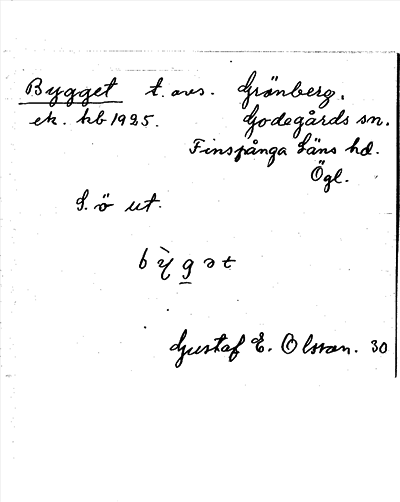 Bygget t. avs. Grönberg.
ek. kb 1925. Godegårds sn.
Finspånga Läns hd.
Ögl.
S. ö ut.
bỳgət
Gustaf E. Olsson. 30